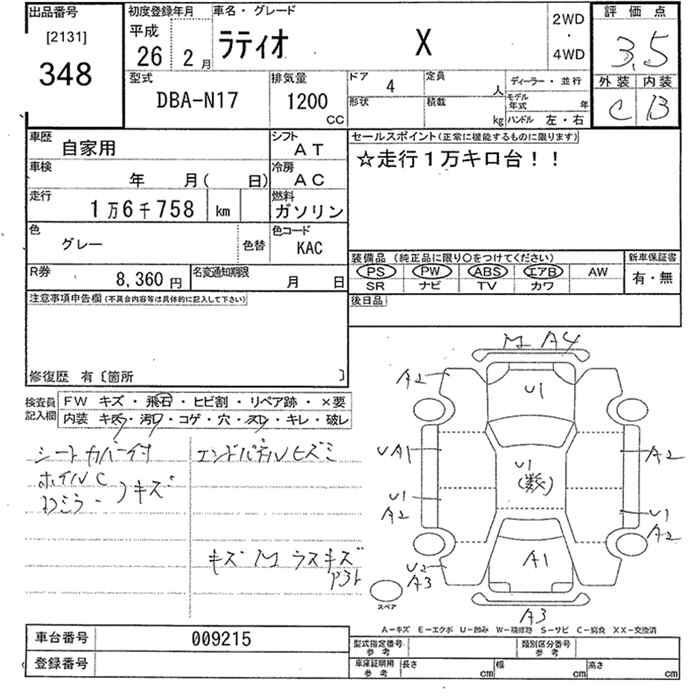 出品番号 [2131] 348
初度登録年月 平成 26 年 2 月
車名・グレード ラティオ X
2WD ・ 4WD
評価点 3.5
外装 C 内装 B
型式 DBA-N17
排気量 1200 CC
ドア 4
形状
定員 人
積載 kg
ディーラー・並行
モデル年式 年
ハンドル 左・右
車歴 自家用
シフト AT
車検 年 月( 日)
冷房 AC
走行 1万6千758 km
燃料 ガソリン
色 グレー 色替
色コード KAC
R券 8,360 円
名変通知期限 月 日
セールスポイント(正常に機能するものに限ります)
☆走行1万キロ台!!
装備品 (純正品に限り○をつけてください)
PS PW ABS エアB AW
SR ナビ TV カワ
新車保証書 有・無
後日品
注意事項申告欄(不具合内容等は具体的に記入して下さい)
修復歴 有〔箇所 〕
検査員記入欄
FW キズ・飛石・ヒビ割・リペア跡・×要
内装 キズ・汚れ・コゲ・穴・スレ・キレ・破レ
シートカバー付
ホイルC
キズ
エンドパネルヒズミ
キズ M ラスキズ
M A4
A2
U1
UA1
A2
U1
(数)
U1
A2
U1
A2
U2
A3
A1
A3
スペア
A-キズ E-エクボ U-凹み W-補修跡 S-サビ C-腐食 XX-交換済
車台番号 009215
登録番号
型式指定番号 参考
類別区分番号 参考
車庫証明用 参考 長さ cm 幅 cm 高さ cm